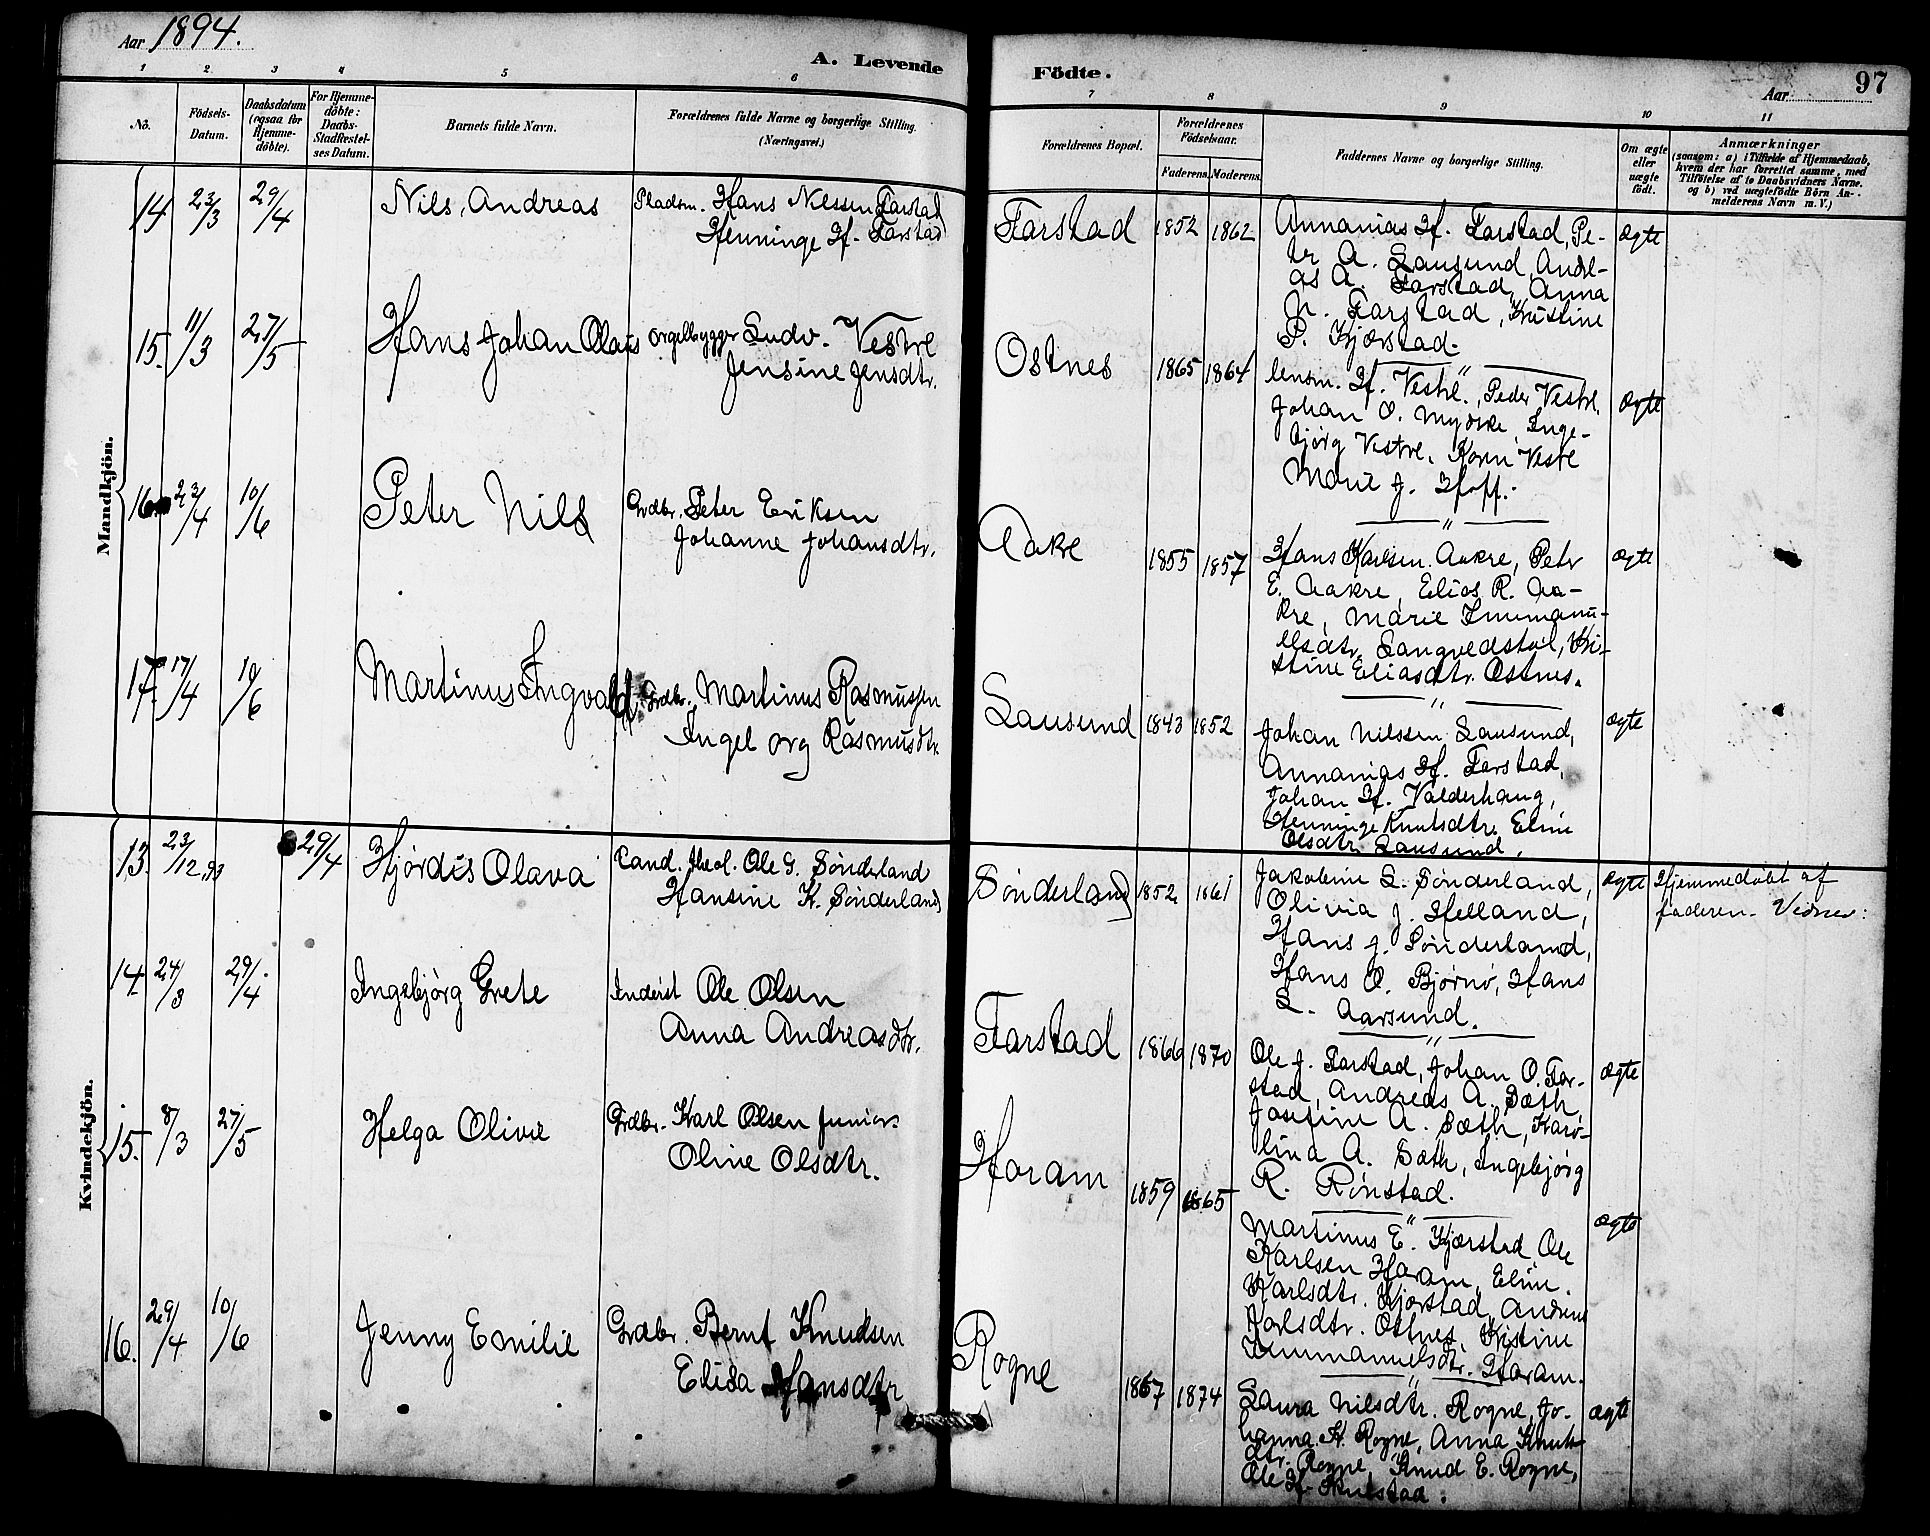 Aar 1894.
A. Levende Födte.
Aar
97
1 2 3 4 5 6 7 8 9 10 11
No.
Födsels-
Datum.
Daabsdatum
(ogsaa for
Hjemme-
döbte).
For Hjemme-
döbte:
Daabs-
Stadfæstel-
ses Datum.
Barnets fulde Navn.
Forældrenes fulde Navne og borgerlige Stilling.
(Næringsvei.)
Forældrenes Bopæl.
Forældrenes
Födselsaar.
Faderens. Moderens.
Faddernes Navne og borgerlige Stilling.
Om ægte
eller
uægte
födt.
Anmærkninger
(saasom: a) i Tilfælde af Hjemmedaab,
hvem der har forrettet samme, med
Tilföielse af to Daabsvidners Navne.
og b) ved uægtefödte Börn An-
melderens Navn m. V.)
Mandkjön.
14 23/3 29/4 Nils Andreas
Pladsm. Hans Nilssen Farstad
Henninge H. Farstad
Farstad 1852 1862
Annanias H. Farstad, Pe-
ter A. Lausund, Andre-
as A. Farstad, Anna
N. Farstad, Kristine
P. Kjærstad.
ægte
15. 11/3 27/5 Hans Johan Olais
orgelbygger Ludv. Vestre
Jensine Jensdtr.
Ostnes 1865 1864
lensm. H. Vestre, Peder Vestre.
Johan O. Myrske, Inge-
bjørg Vestre. Karen Vestre
Marie J. Hoff.
ægte
16. 23/4 10/6 Peter Nils
Grdbr. Peter Eriksen
Johanne Johansdtr.
Aakre 1855 1857
Hans Karlsen Aakre, Peter
E. Aakre, Elias R. Aa-
kre, Marie Immanu-
elsdtr. Langvedstøl, Kri-
stine Eliasdtr. Ostnes.
ægte
17. 17/4 10/6 Martinus Ingvald
Grdbr. Martinus Rasmussen
Ingeborg Rasmusdtr.
Lausund 1843 1852
Johan Nilssen Lausund,
Annanias H. Farstad,
Johan H. Valderhaug,
Henninge Knutsdtr. Eline
Olsdtr. Lausund.
ægte
Kvindekjön.
13. 23/12.93 29/4 Hjørdis Olava
Cand. theol. Ole G. Sønderland
Hansine K. Sønderland
Sønderland 1852 1861
Jakobine L. Sønderland,
Olivia J. Helland,
Hans J. Sønderland,
Hans O. Bjørnø, Hans
L. Aarsund.
ægte
Hjemmedøbt af
faderen. Vidner:
14. 24/3 29/4 Ingebjørg Grete
Inderst Ole Olsen
Anna Andreasdtr.
Farstad 1866 1870
Ole J. Farstad, Johan O. Far-
stad, Andreas A. Sæth,
Josefine A. Sæth, Karo-
lina A. Sæth, Ingebjørg
R. Rønstad.
ægte
15. 8/3 27/5 Helga Olivie
Grdbr. Karl Olsen junior
Oline Olsdtr.
Haram 1859 1865
Martinus E. Kjærstad Ole
Karlsen Haram, Eline
Karlsdtr. Kjærstad, Andrine
Karlsdtr. Ostnes, Kristine
Immanuelsdtr. Haram.
ægte
16. 29/4 10/6 Jenny Emilie
Grdbr. Bernt Knudsen
Elisa Hansdtr
Rogne 1867 1874
Laura Nilsdtr. Rogne, Jo-
hanna K. Rogne, Anna Knuts-
dtr. Rogne, Knud E. Rogne,
Ole H. Skulstad.
ægte